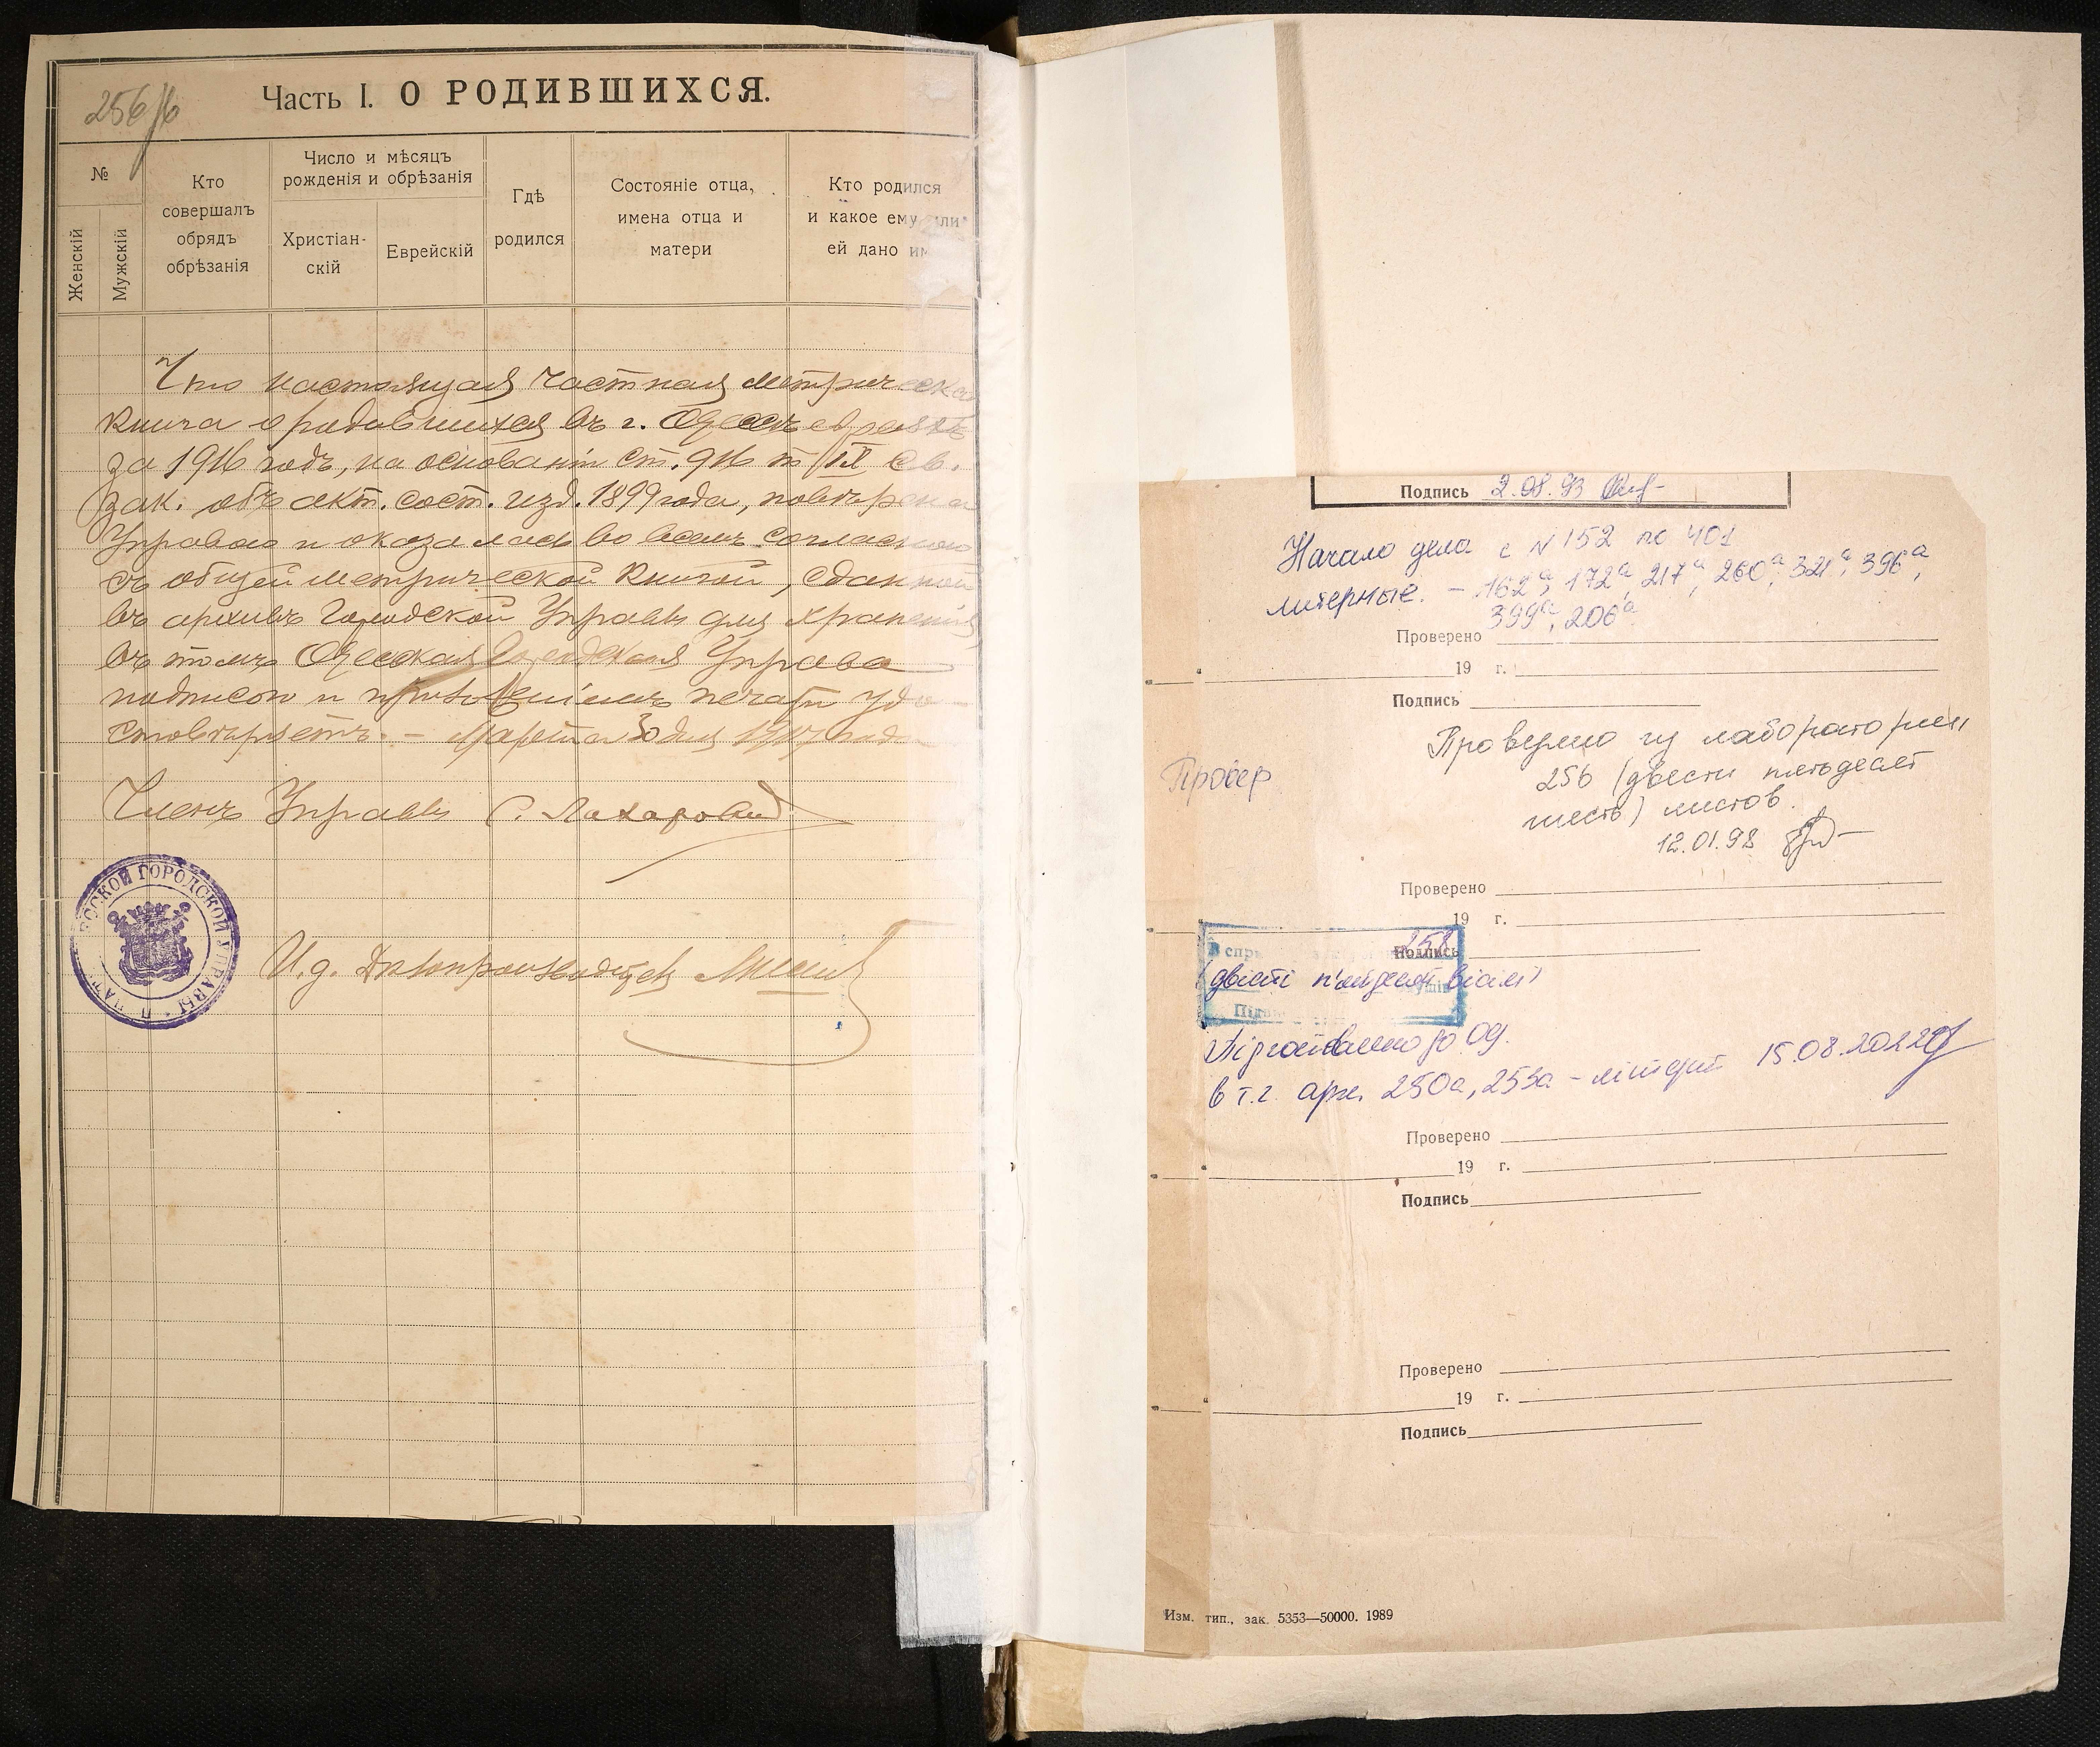 256/6
Часть I. О РОДИВШИХСЯ.
№
Женскій
Мужскій
Кто
совершалъ
обрядъ
обрѣзанія
Число и мѣсяцъ
рожденія и обрѣзанія
Христіан-
скій
Еврейскій
Гдѣ
родился
Состояніе отца,
имена отца и
матери
Кто родился
и какое ему или
ей дано им
Что настоящая частная метрическая
книга о родившихся въ г. Одессѣ евреяхъ
за 1916 годъ, на основаніи ст. 916 т. IX Св.
зак. объ акт. сост. изд. 1899 года, повѣрена
Управою и оказалась во всемъ согласною
съ общей метрической книгой, сданной
въ архивъ Городской Управы для храненія,
въ томъ Одесская Городская Управа
подписью и приложеніемъ печати удо-
стовѣряетъ. – Марта 30 дня 1917 года
Членъ Управы
ССКОЙ ГОРОДСКОЙ УПРАВЫ
И. д. Дѣлопроизводителя
Подпись 2.08.93
Начало дела с N 152 по 401
литерные. – 162а, 172а, 217а, 260а, 321а, 396а,
399а, 206а
Проверено
19 г.
Подпись
Провер
Проверено
256 (двести пятьдесят
шесть) листов.
12.01.98
Проверено
19 г.
258
Подпись
(двісті п'ятдесят вісім)
Підготовлено до
в т.ч. арк. 250а, 253а – літерні 15.08.2022
Проверено
19 г.
Подпись
Проверено
19 г.
Подпись
Изм. тип., зак. 5353—50000. 1989